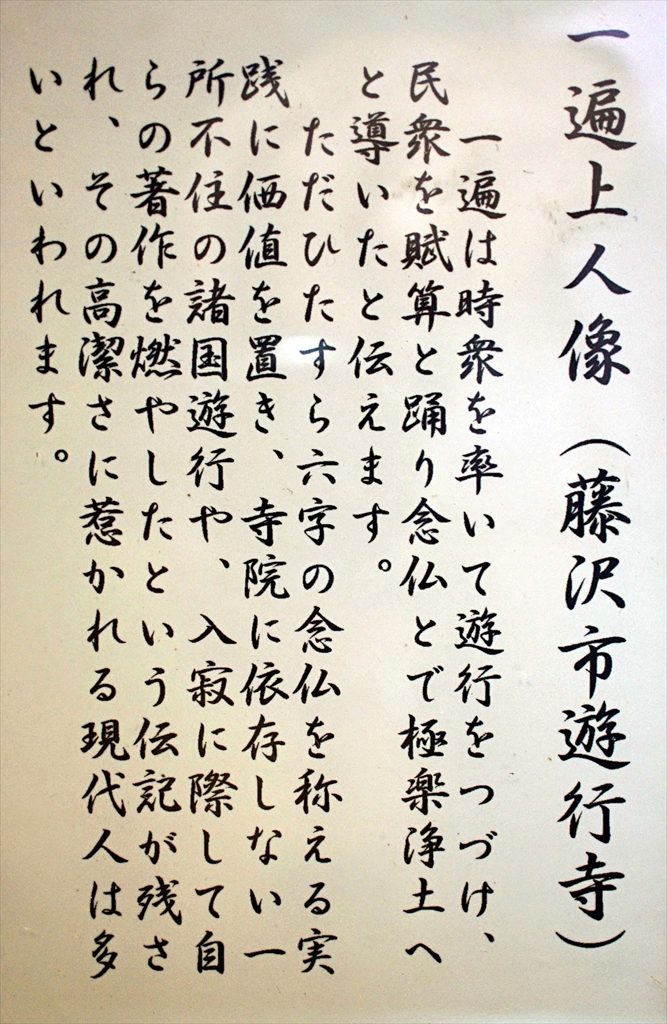 一遍上人像（藤沢市遊行寺）
一遍は時衆を率いて遊行をつづけ、
民衆を賦算と踊り念仏とで極楽浄土へ
と導いたと伝えます。
ただひたすら六字の念仏を称える実
践に価値を置き、寺院に依存しない一
所不住の諸国遊行や、入寂に際して自
らの著作を燃やしたという伝記が残さ
れ、その高潔さに惹かれる現代人は多
いといわれます。